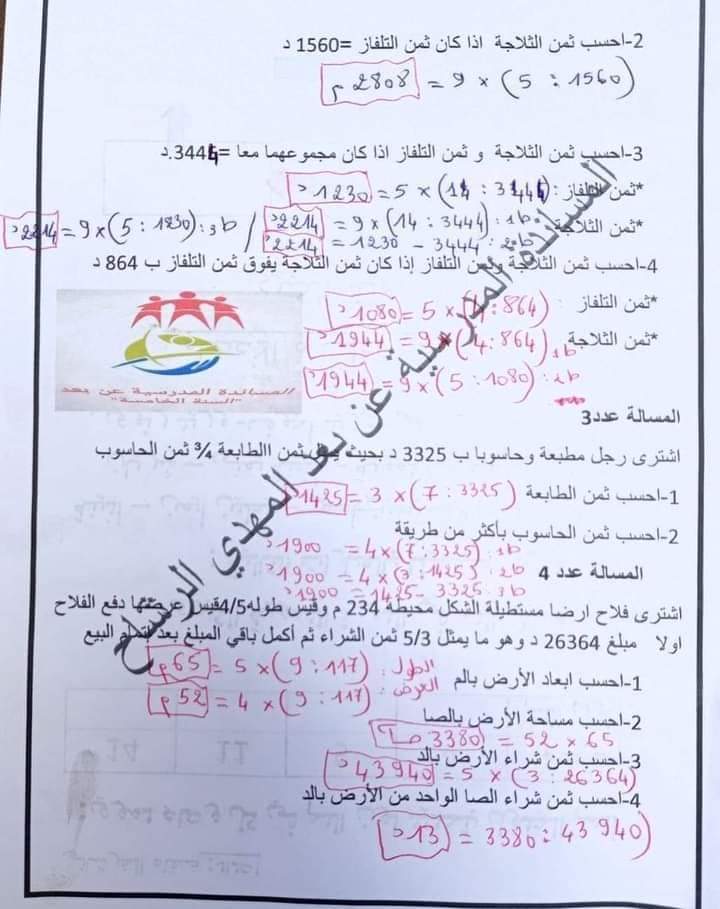 2-احسب ثمن الثلاجة اذا كان ثمن التلفاز =1560 د
(1560 : 5) × 9 = 2808 م
3-احسب ثمن الثلاجة و ثمن التلفاز اذا كان مجموعهما معا =3444.د
*ثمن التلفاز : (3444 : 14) × 5 = 1230 د
*ثمن الثلاجة: ط1: (3444 : 14) × 9 = 2214 د / ط3: (1230 : 5) × 9 = 2214 د
ط2: 3444 - 1230 = 2214 د
4-احسب ثمن الثلاجة وثمن التلفاز إذا كان ثمن الثلاجة يفوق ثمن التلفاز ب 864 د
*ثمن التلفاز (864 : 4) × 5 = 1080 د
*ثمن الثلاجة ط1 (864 : 4) × 9 = 1944 د
ط2: (1080 : 5) × 9 = 1944 د
المساندة المدرسية عن بعد
"السنة الخامسة"
المسالة عدد3
اشترى رجل مطبعة وحاسوبا ب 3325 د بحيث ثمن االطابعة ¾ ثمن الحاسوب
1-احسب ثمن الطابعة (3325 : 7) × 3 = 1425 د
2-احسب ثمن الحاسوب بأكثر من طريقة
ط1: (3325 : 7) × 4 = 1900 د
ط2: (1425 : 3) × 4 = 1900 د
ط3: 3325 - 1425 = 1900 د
المسالة عدد 4
اشترى فلاح ارضا مستطيلة الشكل محيطه 234 م وقيس طوله 4/5قيس عرضها دفع الفلاح
اولا مبلغ 26364 د وهو ما يمثل 5/3 ثمن الشراء ثم أكمل باقي المبلغ بعد اتمام البيع
1-احسب ابعاد الأرض بالم
الطول : (117 : 9) × 5 = 65 م
العرض : (117 : 9) × 4 = 52 م
2-احسب مساحة الأرض بالصا
65 × 52 = 3380 صا
3-احسب ثمن شراء الأرض بالد
(26364 : 3) × 5 = 43940 د
4-احسب ثمن شراء الصا الواحد من الأرض بالد
(43940 : 3380 = 13 د
المساندة المدرسية عن بعد المهدي الرساح